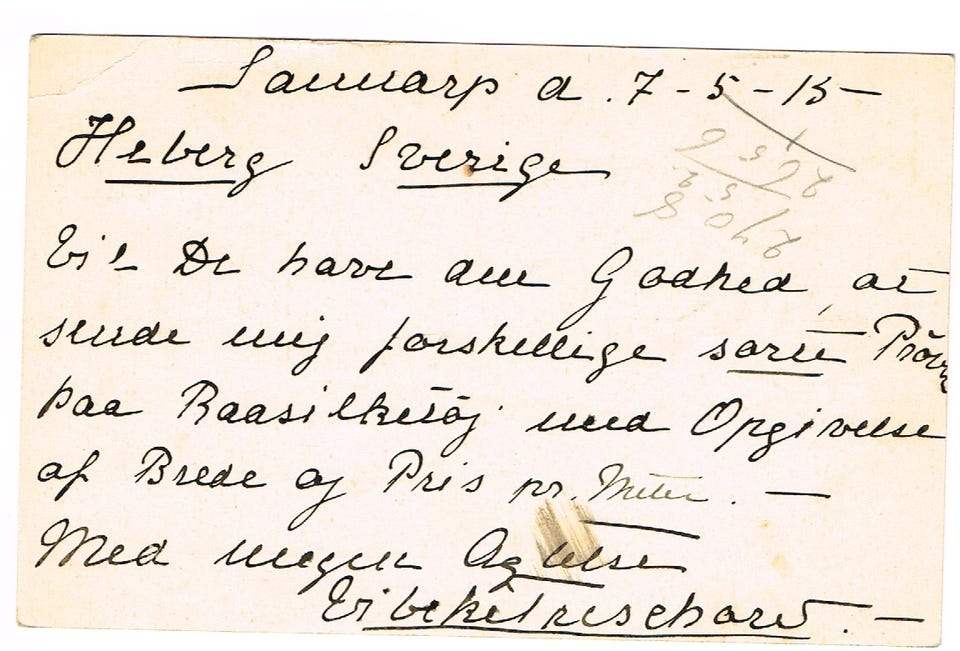 Sannarp d. 7-5-15-
Heberg Sverige
Vil De have den Godhed, at
sende mig forskellige sorte Pröver
paa Raasilketöj med Opgivelse
af Brede og Pris pr. Meter. —
Med megen Agtelse